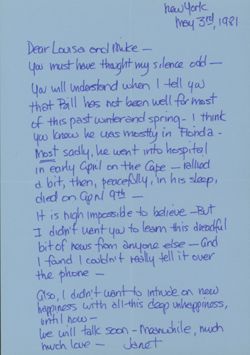 New York
May 3rd, 1981
Dear Louisa and Mike —
You must have thought my silence odd —
You will understand when I tell you
that Bill has not been well for most
of this past winter and spring — I think
you know he was mostly in Florida —
Most sadly, he went into hospital
in early April on the Cape — rallied
a bit, then, peacefully, in his sleep,
died on April 9th —
It is nigh impossible to believe — But
I didn't want you to learn this dreadful
bit of news from anyone else — and
I found I couldn't really tell it over
the phone —
Also, I didn't want to intrude on new
happiness with all this deep unhappiness,
until now —
We will talk soon — Meanwhile, much
much love — Janet